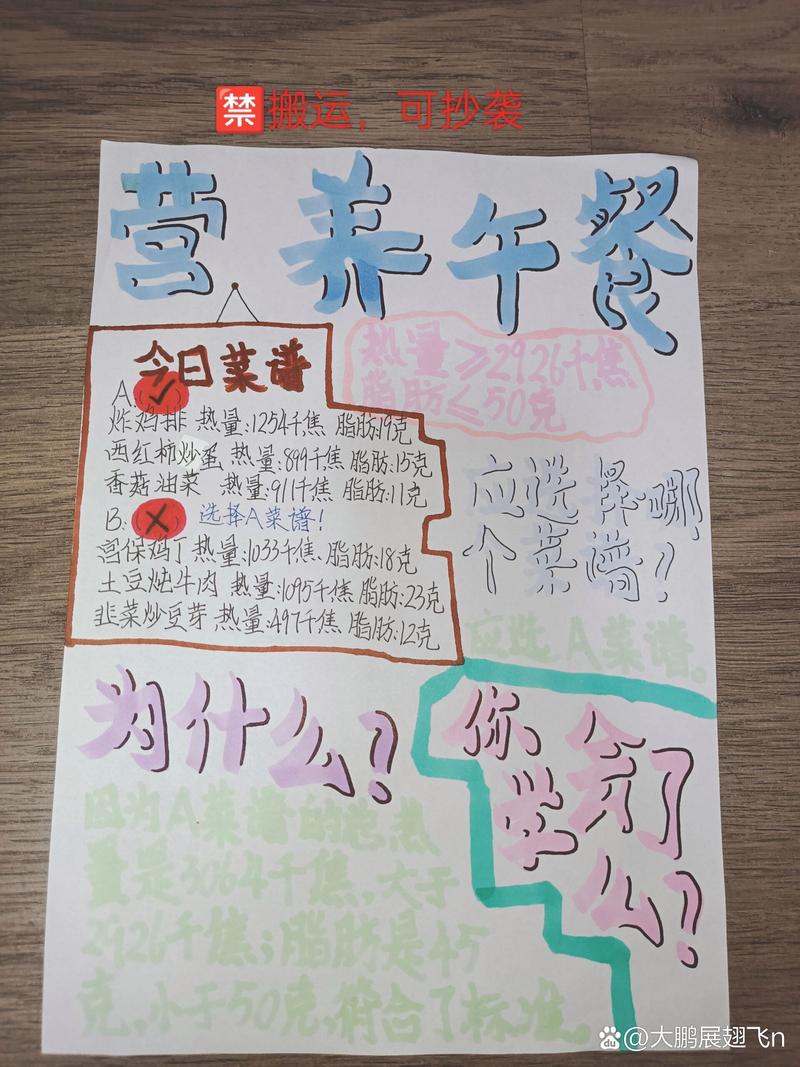 禁搬运，可抄袭
营养午餐
今日菜谱
A:(✓)
炸鸡排 热量:1254千焦 脂肪:19克
西红柿炒蛋 热量:899千焦 脂肪:15克
香菇油菜 热量:911千焦 脂肪:11克
B:(×) 选择A菜谱!
宫保鸡丁 热量:1033千焦、脂肪:18克
土豆炖牛肉 热量:1095千焦 脂肪:23克
韭菜炒豆芽 热量:497千焦 脂肪:12克
热量≥2926千焦
脂肪≤50克
应选择哪
个菜谱?
应选A菜谱。
为什么?
因为A菜谱的总热
量是3064千焦,大于
2926千焦;脂肪是45
克,小于50克,符合了标准。
你
学会了
么?
@大鹏展翅飞n